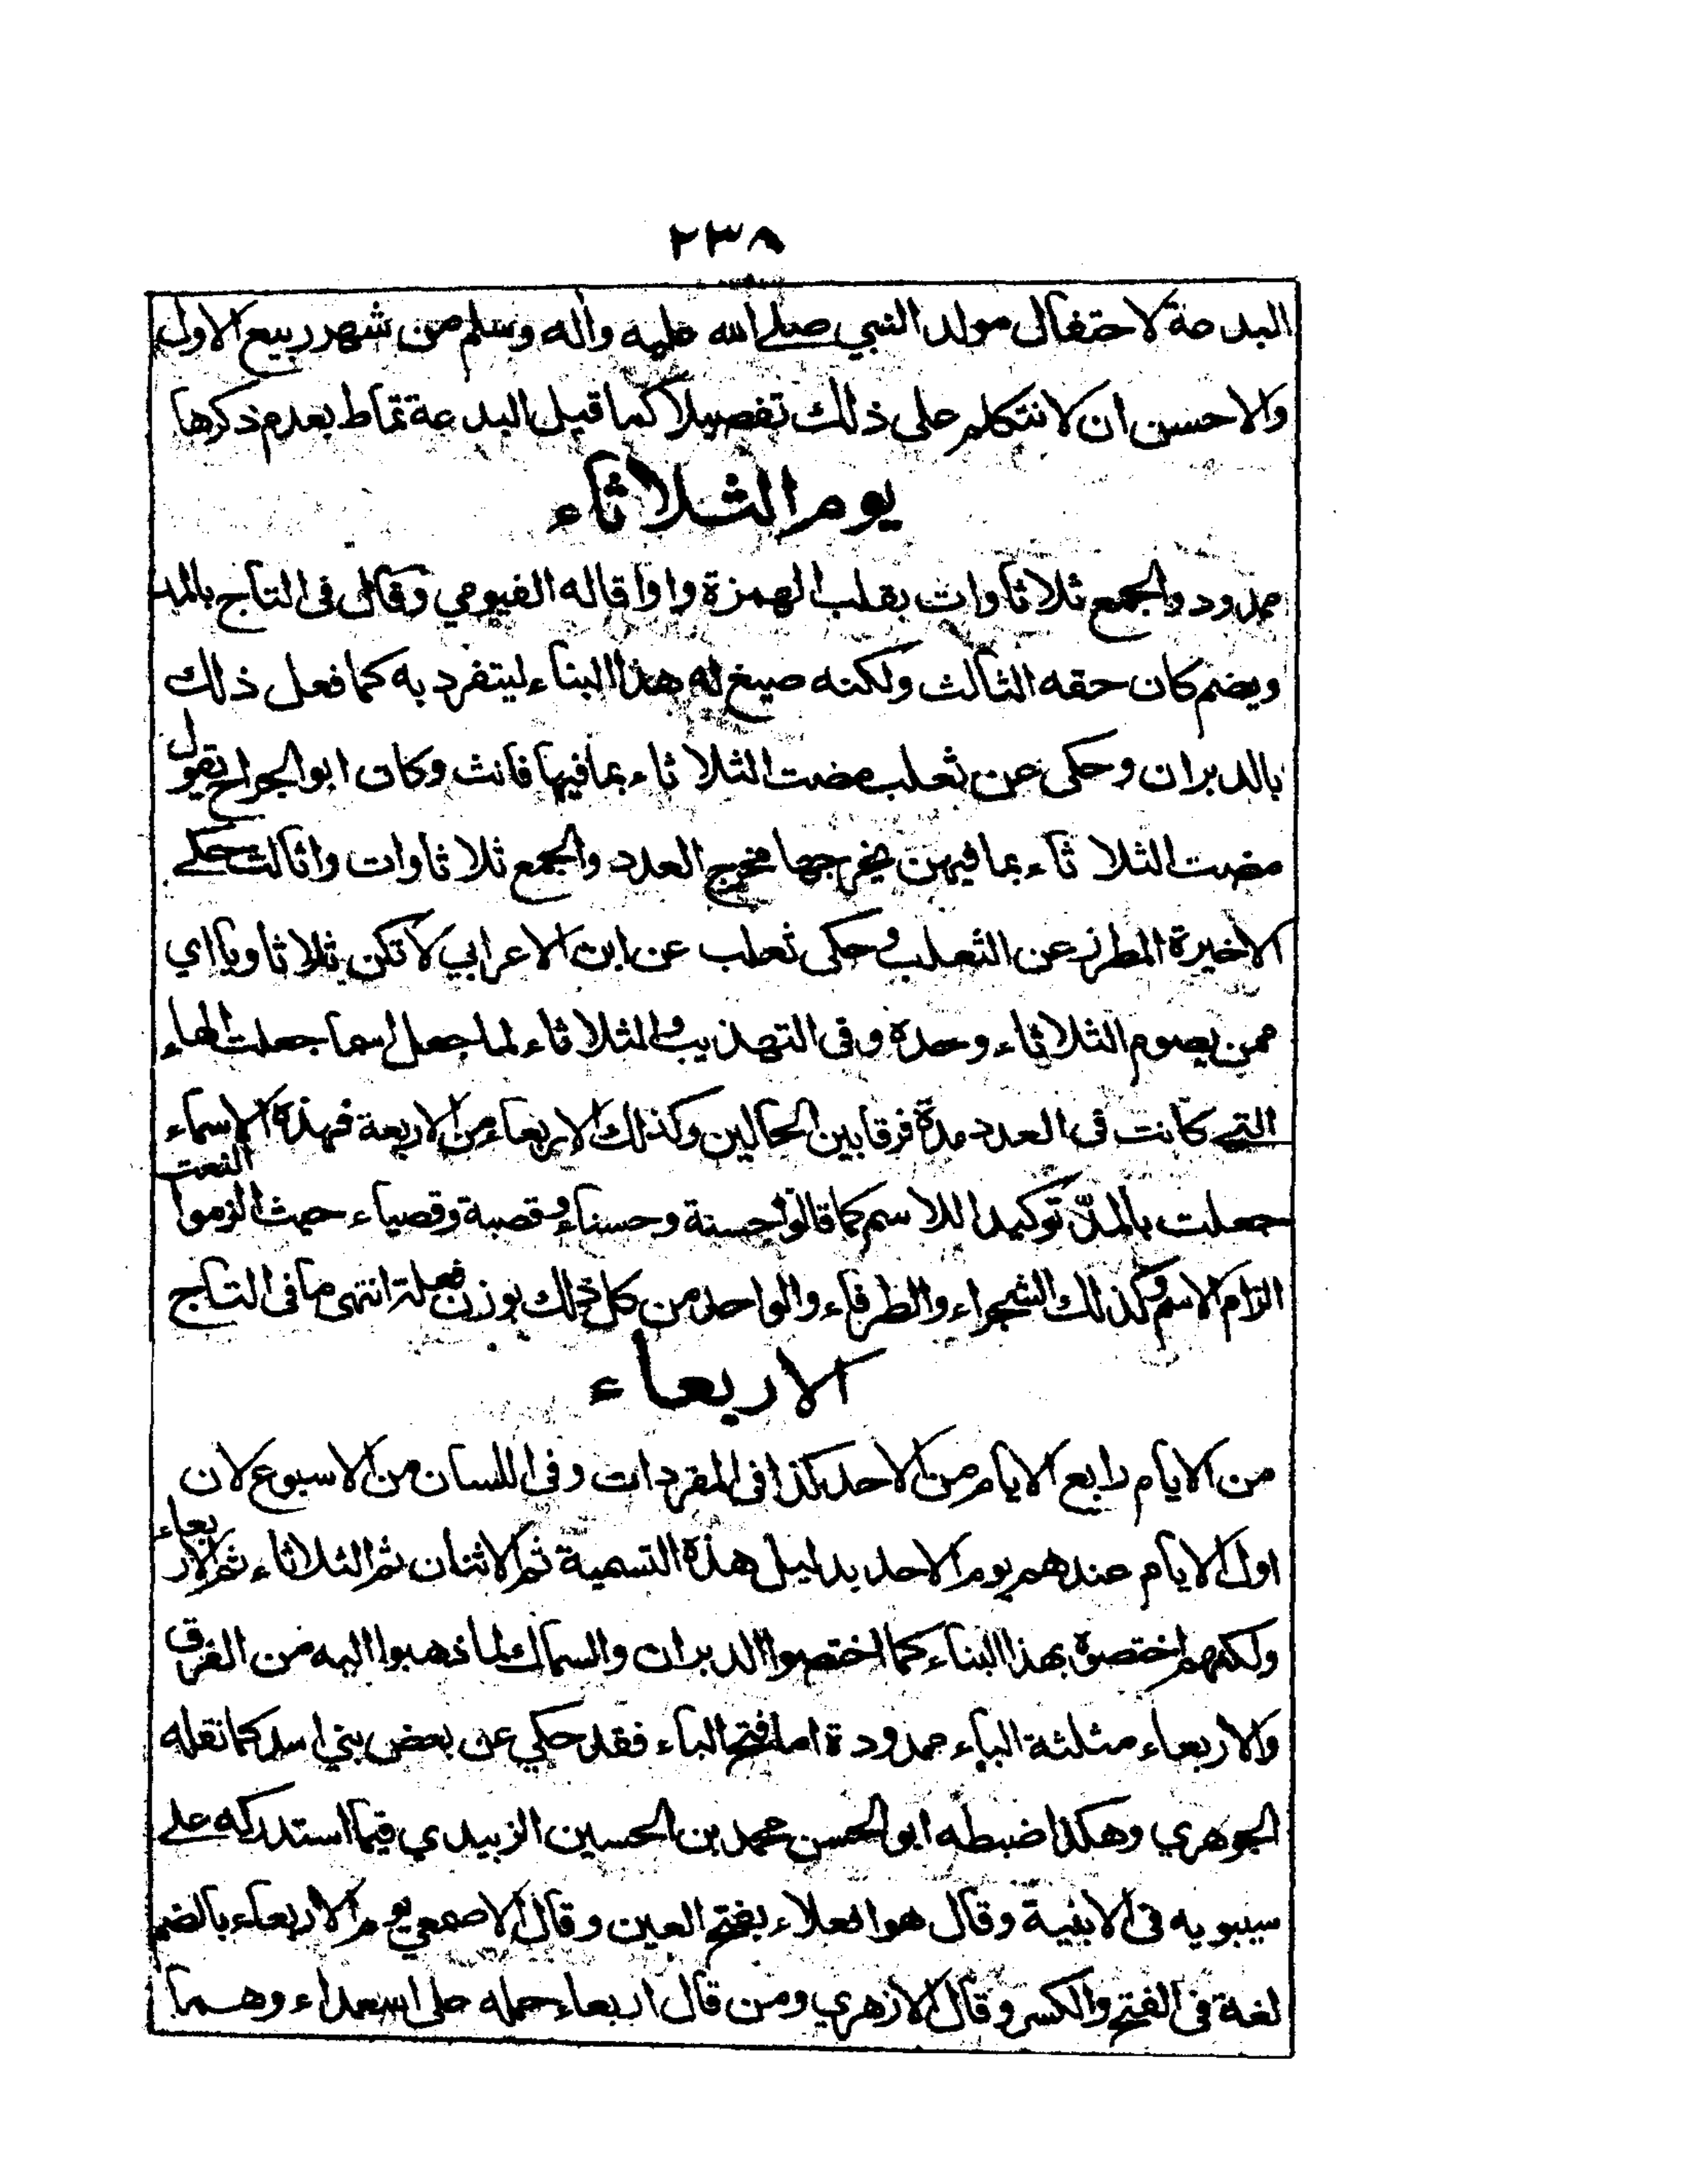 ٢٣٨
البدعة لاحتفال مولد النبي صلے الله عليه وآله وسلم من شهر ربيع الاول
والاحسن ان لا نتكلم على ذلك تفصيلا كما قيل البدعة تماط بعدم ذكرها
يوم الثلاثاء
ممدود والجمع ثلاثاوات بقلب الهمزة واوا قاله الفيومي وقال فى التاج بالمد
ويضم كان حقه الثالث ولكنه صيغ له هذا البناء ليتفرد به كما فعل ذلك
بالدبران وحكى عن ثعلب مضت الثلاثاء بما فيها فانث وكان ابو الجراح يقول
مضت الثلاثاء بما فيهن يخرجها مخرج العدد والجمع ثلاثاوات واثالث حكے
الاخيرة المطرز عن الثعلب وحكى ثعلب عن ابن الاعرابي لا تكن ثلاثاويا اي
ممن يصوم الثلاثاء وحده وفى التهذيب والثلاثاء لما جعل اسما جعلت الهاء
التے كانت فى العدد مدة فرقا بين الحالين وكذلك الاربعاء من الاربعة فهذه الاسماء
جعلت بالمدّ توكيدا للاسم كما قالوا حسنة وحسناء وقصبة وقصباء حيث الزموا النعت
الزام الاسم وكذلك الشجراء والطرفاء والواحد من كل ذلك بوزن فعلة انتهى ما فى التاج
الاربعاء
من الايام رابع الايام من الاحد كذا فى المفردات وفى اللسان من الاسبوع لان
اول الايام عندهم يوم الاحد بدليل هذه التسمية ثم الاثنان ثم الثلاثاء ثم الاربعاء
ولكنهم اختصوه بهذا البناء كما اختصوا الدبران والسماك لما ذهبوا اليه من الفرق
والاربعاء مثلثة الباء ممدودة اما فتح الباء فقد حكي عن بعض بني اسد كما نقله
الجوهري وهكذا ضبطه ابو الحسن محمد بن الحسين الزبيدي فيما استدركه علے
سيبويه فى الابنية وقال هو افعلاء بفتح العين وقال الاصمعي يوم الاربعاء بالضم
لغة فى الفتح والكسر وقال الازهري ومن قال اربعاء حمله على اسعداء وهما